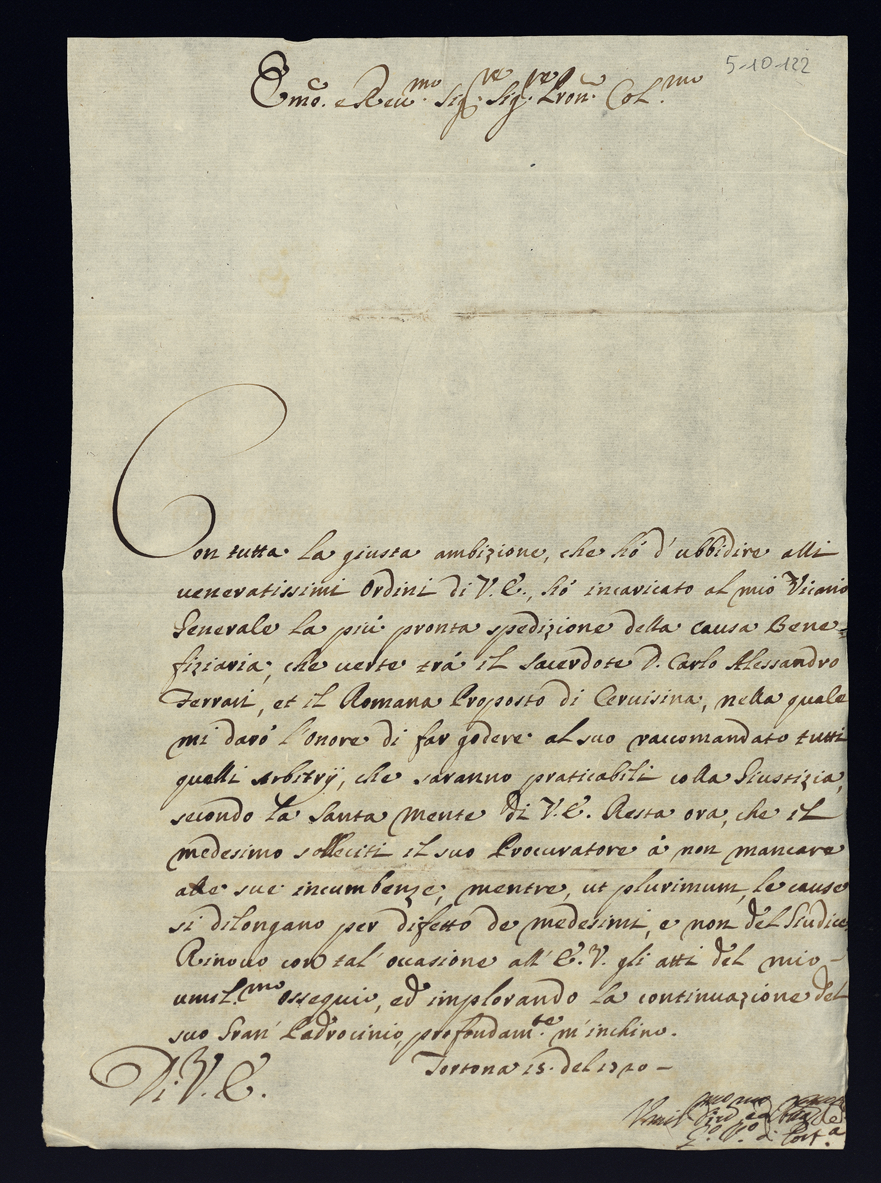 5-10-122
Em̃o. e Reu.mo Sig.re Sig.re Pron̄. Col.mo
Con tutta la giusta ambizione, che hó d'ubbidire alli
ueneratissimi Ordini di V.E., hó incaricato al mio Vicario
Generale la piú pronta spedizione della causa Bene=
fiziaria, che uerte trá il Sacerdote D. Carlo Alessandro
Ferrari, et il Romana Proposto di Ceruisina, nella quale
mi daró l'onore di far godere al suo raccomandato tutti
quelli Arbitrij, che saranno praticabili colla Giustizia,
secondo la Santa Mente di V.E. Resta ora, che il
medesimo solleciti il suo Procuratore á non mancare
alle sue incumbenze, mentre, ut plurimum, le cause
si dilongano per difetto de medesimi, e non del Giudice,
Rinouo con tal' occasione all' E.V. gli atti del mio
umil.mo ossequio, ed implorando la continuazione del
suo Gran' Padrocinio, profondam.te m'inchino.
Di V.E. Tortona 15. del
Umil.mo
di Tort.a